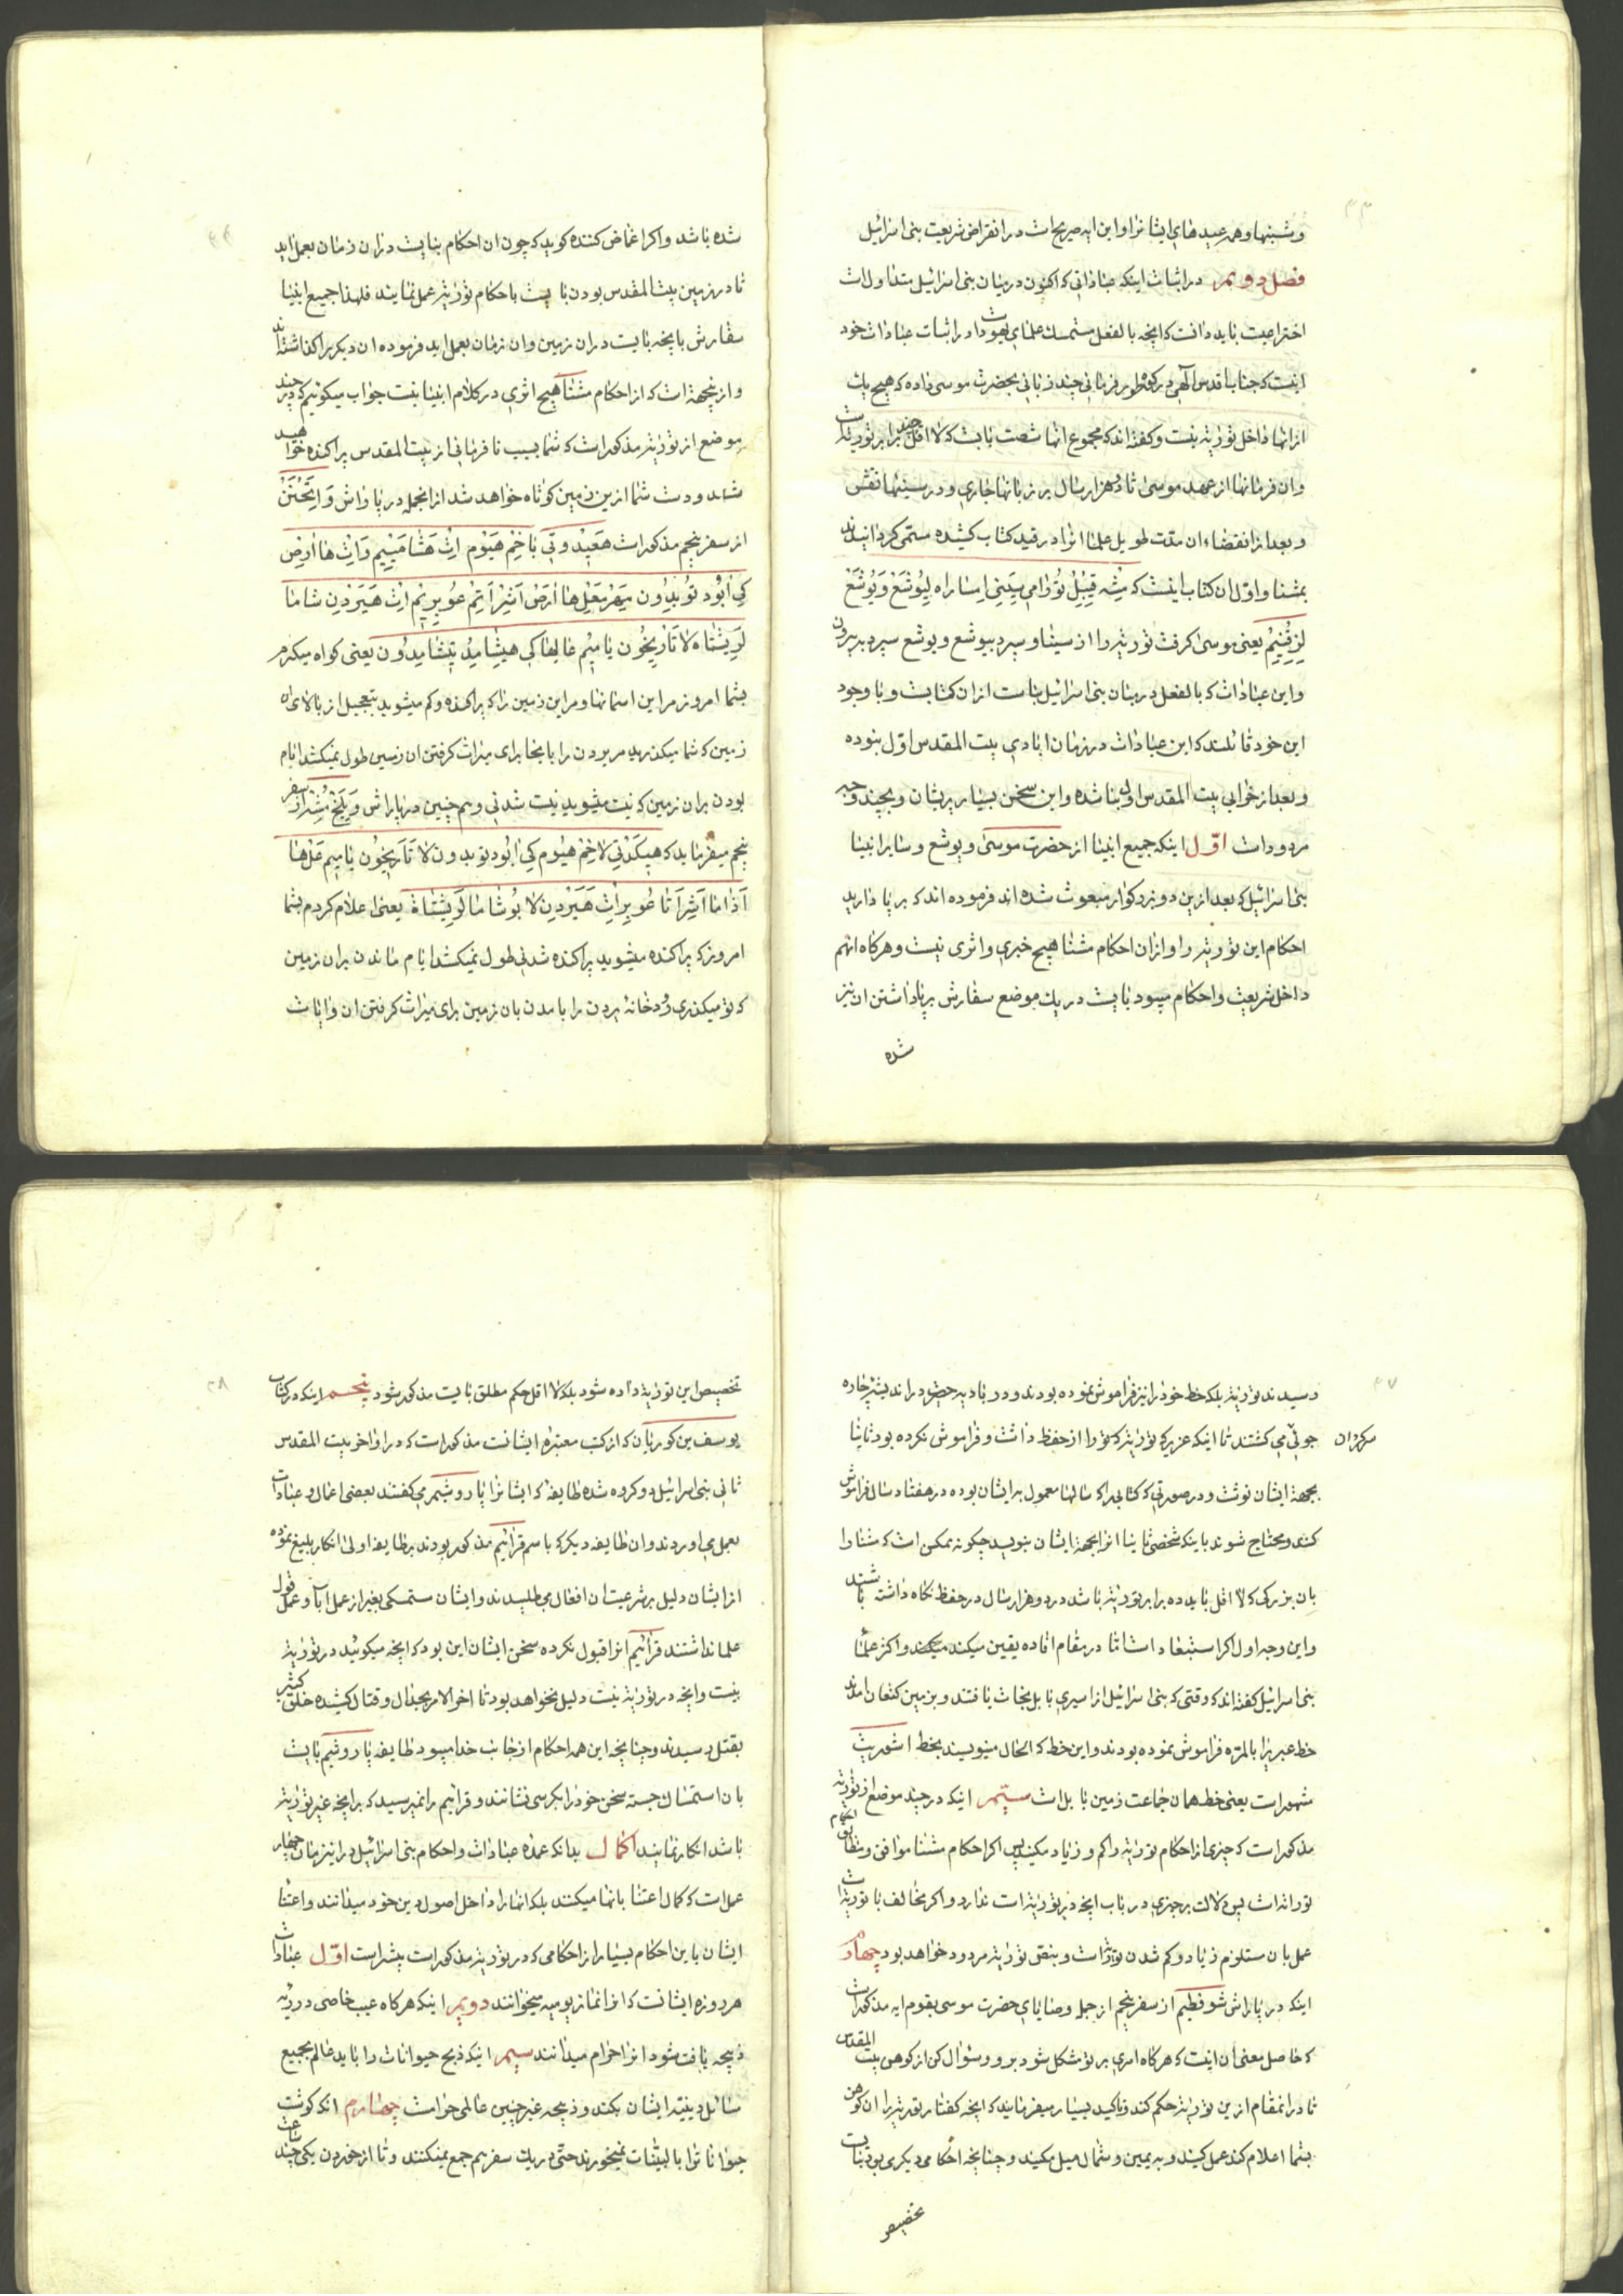 و شبنها و همه عیدهای ایشانرا و این ایه صریح است در انقراض شریعت بنی اسرائیل
فصل دویم در اثبات اینکه عباداتی که اکنون در میان بنی اسرائیل متداول است
اختراعیت باید دانست که انچه بالفعل متمسک علمای یهود است در اثبات عبادات خود
اینست که جناب اقدس الهی در کوه طور فرمانی چند زبانی بحضرت موسی داده که هیچ یک
از انها داخل توریة نیست و کفته اند که مجموع انها شصت بابت که لااقل چند برابر توریة است
و ان فرمانها از عهد موسی تا دو هزار سال بر زبانها جاری و در سینها نقش
و بعد از انقضاء ان مدت طویل علما انرا در قید کتاب کشیده مسمی کردانیدند
بمشنا و اول ان کتاب اینست که مُشِه قِیبِلْ تُورا مِی سِینِی اِمسَاراه لِیُوشَعْ وَیُوشَعْ
لِزِقِنِیمْ یعنی موسی کرفت توریة را از سینا و سپرد بیوشع و یوشع سپرد به پیران
و این عبادات که بالفعل در میان بنی اسرائیل بناست از ان کتابست و با وجود
این خود قائلند که این عبادات در زمان ابادی بیت المقدس اول نبوده
و بعد از خرابی بیت المقدس اول بنا شده و این سخن بسیار پریشان و بچند وجه
مردود است اوّل اینکه جمیع انبیا از حضرت موسی و یوشع و سایر انبیا
بنی اسرائیل که بعد از این دو بزرکوار مبعوث شده اند فرموده اند که بر پا دارید
احکام این توریة را و از ان احکام مشنا هیچ خبری و اثری نیست و هرکاه انهم
داخل شریعت و احکام میبود بایست در یک موضع سفارش بر پا داشتن ان نیز
شده
شده باشد و اکر اغماض کننده کوید که چون ان احکام بنایست در ان زمان بعمل اید
تا در زمین بیت المقدس بودن بایست باحکام توریة عمل نمایند فلهذا جمیع انبیا
سفارش بانچه بایست در ان زمین و ان زمان بعمل اید فرموده ان دیکر را کذاشته اند
و از نیجهة است که از احکام مشنا هیچ اثری در کلام انبیا نیست جواب میکوئیم که در چند
موضع از توریة مذکور است که شما بسبب نافرمانی از بیت المقدس پراکنده خواهید
شد و دست شما از ین زمین کوتاه خواهد شد از انجمله در پاراش وَاِیتْحَنَنْ
از سفر پنجم مذکور است هَعِیدُوتِی بَاخِمْ هَیُوم اِتْ هَشّامَییِم وَاِتْ هَا اَرِضْ
کِی اَبُود تُوبِدُون مَهِرْ مِعَلْ هَا اَرِضْ اَشِرْ اَتِمْ عُوبِرِیمْ اِتْ هَیَرْدِن شاما
لَرِیشْتاه لا تَاَرِیخُون یامِیمْ عالِها کی هیشّامِدْ تِیشّامِدُون یعنی کواه میکیرم
بشما امروز مر این اسمانها و مر این زمین را که پراکنده و کم میشوید بتعجیل از بالای ان
زمین که شما میکذرید مر یردن را بانجا برای میراث کرفتن ان زمین طول نمیکشد ایام
بودن بران زمین که نیست میشوید نیست شدنی و هم چنین در پاراش وَیِلِخْ مُشِه از سفر
پنجم میفرماید که هِیکَدْتِی لاخِمْ هَیُوم کِی اَبُود توبدون لا تَاَرِیخُون یامِیم عَلْ هَا
اَدَاما اَشِرْ اَتا عُوبِر اِتْ هَیَرْدِن لابُو شاما لَرِیشْتاه یعنی اعلام کردم بشما
امروز که پراکنده میشوید پراکنده شدنی طول نمیکشد ایام ماندن بران زمین
که تو میکذری رودخانه یردن را بامدن بان زمین برای میراث کرفتن ان و اثبات
رسیدند توریة بلکه خط خود را نیز فراموش نموده بودند و در بادیه حضر در اندیشه چاره
جوئی می کشتند تا اینکه عزیر که توریة را از حفظ داشت و فراموش نکرده بود ثانیا
سرکردان
بجهة ایشان نوشت و در صورتی که کتابی را که سالها معمول به ایشان بوده در هفتاد سال فراموش
کنند و محتاج شوند باینکه شخصی ثانیا انرا بجهة ایشان بنویسد چکونه ممکن است که مشنا را
بان بزرکی که لااقل باید ده برابر توریة باشد در دو هزار سال در حفظ نکاه داشته باشند
و این وجه اول اکر استبعاد است اما در مقام افاده یقین میکند و اکثر علما
بنی اسرائیل کفته اند که وقتی که بنی اسرائیل از اسیری بابل نجات یافتند و بزمین کنعان امدند
خط عبریرا بالمره فراموش نموده بودند و این خط که الحال مینویسند بخط اشوریت
مشهور است یعنی خط همان جماعت زمین بابل است سیّم اینکه در چند موضع از توریة
مذکور است که چیزی از احکام توریة را کم و زیاد مکنید پس اکر احکام مشنا موافق و مطابق احکام
توراة است پس دلالت بر چیزی در باب انچه در توریة است ندارد و اکر مخالف با توریة است
عمل بان مستلزم زیاد و کم شدن توریة است و بنص توریة مردود خواهد بود چهارم
اینکه در پاراش شوفطیم از سفر پنجم از جمله وصایای حضرت موسی بقوم ایه مذکور است
که حاصل معنی ان اینست که هرکاه امری بر تو مشکل شود برو و سؤال کن از کوهن بیت المقدس
تا در انمقام از ین توریة حکم کند و تاکید بسیار میفرماید که انچه کفتار توریة را ان کوهن
بشما اعلام کند عمل کنید و به یمین و شمال میل مکنید و چنانچه احکامی دیکری بود بنایست
تخصیص
تخصیص این توریة داده شود بلکه لااقل حکم مطلق بایست مذکور شود پنجم اینکه در کتاب
یوسف بن کوریان که از کتب معتبره ایشانست مذکور است که در اواخر بیت المقدس
ثانی بنی اسرائیل دو کروه شده طایفه که ایشانرا پاروشیم می کفتند بعضی اعمال و عبادات
بعمل می اوردند و ان طایفه دیکر که باسم قرائیم مذکور بودند بر طایفه اولی انکار بلیغ نموده
از ایشان دلیل بر شرعیت ان افعال می طلبیدند و ایشان متمسکی بغیر از عمل ابا و عمل و قول
علما نداشتند قرائیم انرا قبول نکرده سخن ایشان این بود که انچه میکوئید در توریة
نیست و انچه در توریة نیست دلیل نخواهد بود تا اخر الامر بجدال و قتال کشیده خلق کثیر
بقتل رسیدند و چنانچه این همه احکام از جانب خدا میبود طایفه پاروشیم بایست
بان استمساک جسته سخن خود را بکرسی نشانند و قرائیم را نمیرسید که بر انچه غیر توریة
باشد انکار نمایند اکمال بدانکه عمده عبادات و احکام بنی اسرائیل در اینزمان چهار
عمل است که کمال اعتنا بانها میکنند بلکه انها را داخل اصول دین خود میدانند و اعتنا
ایشان باین احکام بسیار از احکامی که در توریة مذکور است بیشتر است اوّل عبادات
هر روزه ایشانست که انرا نماز یومیه میخوانند دویم اینکه هرکاه عیب خاصی در ریه
ذبیحه یافت شود انرا حرام میدانند سیم اینکه ذبح حیوانات را باید عالم بجمیع
مسائل دینیه ایشان بکند و ذبیحه غیر چنین عالمی حرام است چهارم انکه کوشت
حیوانات را با لبنیات نمیخورند حتی در یک سفره هم جمع نمیکنند و تا از خوردن یکی چند ساعت